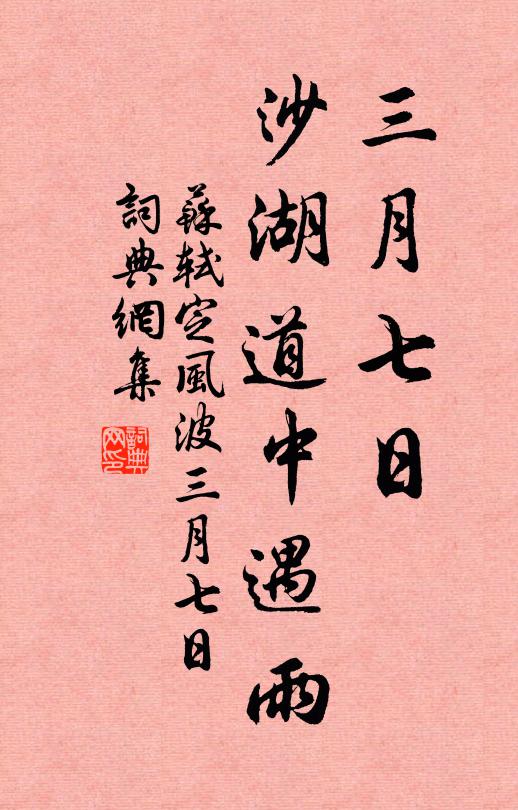 三月七日
沙湖道中遇雨
蘇軾定風波三月七日
詞典網集
詞典
网印